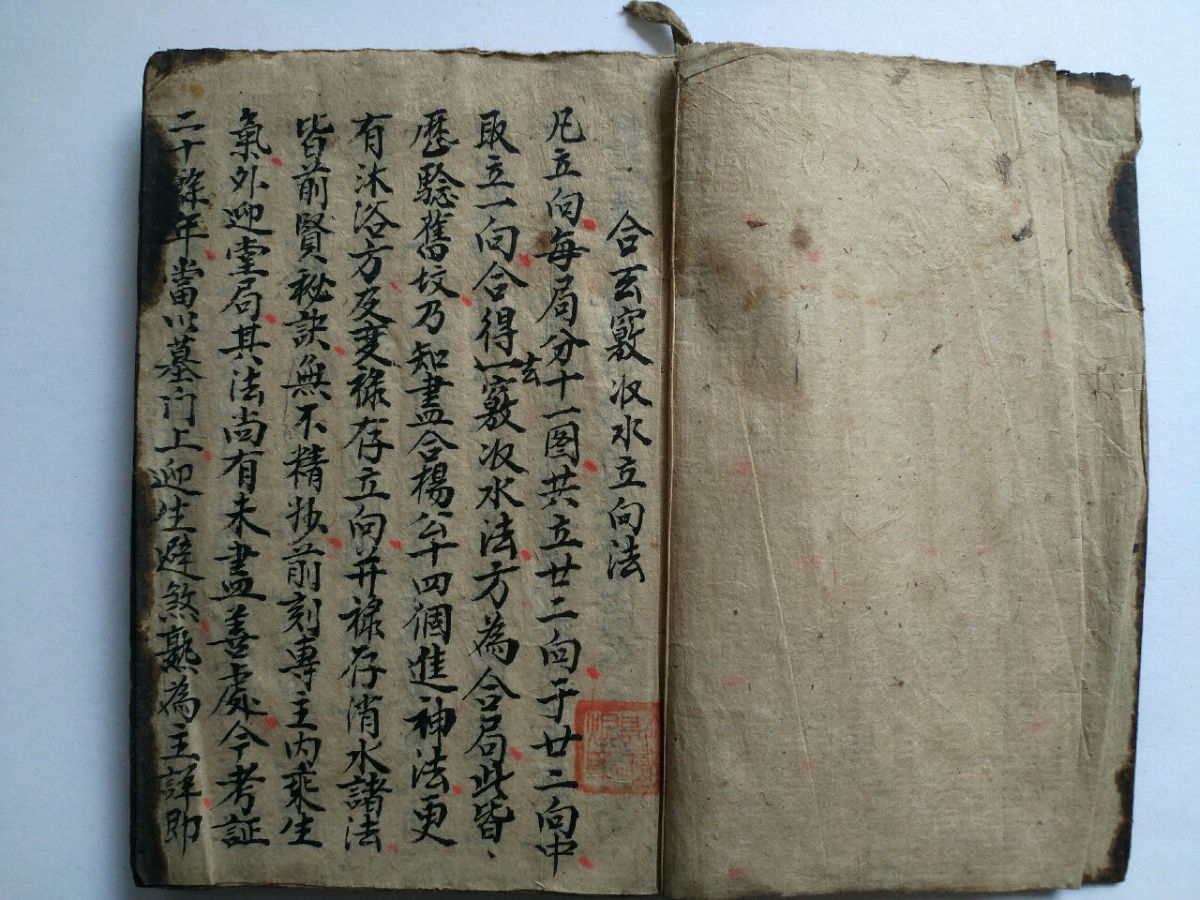 合玄竅收水立向法
凡立向每局分十一图共立廿二向于廿二向中
取立一向合得一玄竅收水法方為合局此皆
歷騐舊坟乃知盡合楊公十四個進神法更
有沐浴方及变祿存立向并祿存消水諸法
皆前賢祕訣無不精妙前刻專主內乘生
氣外迎堂局其法尚有未盡善處今考証
二十餘年當以墓門上迎生避煞為主詳即